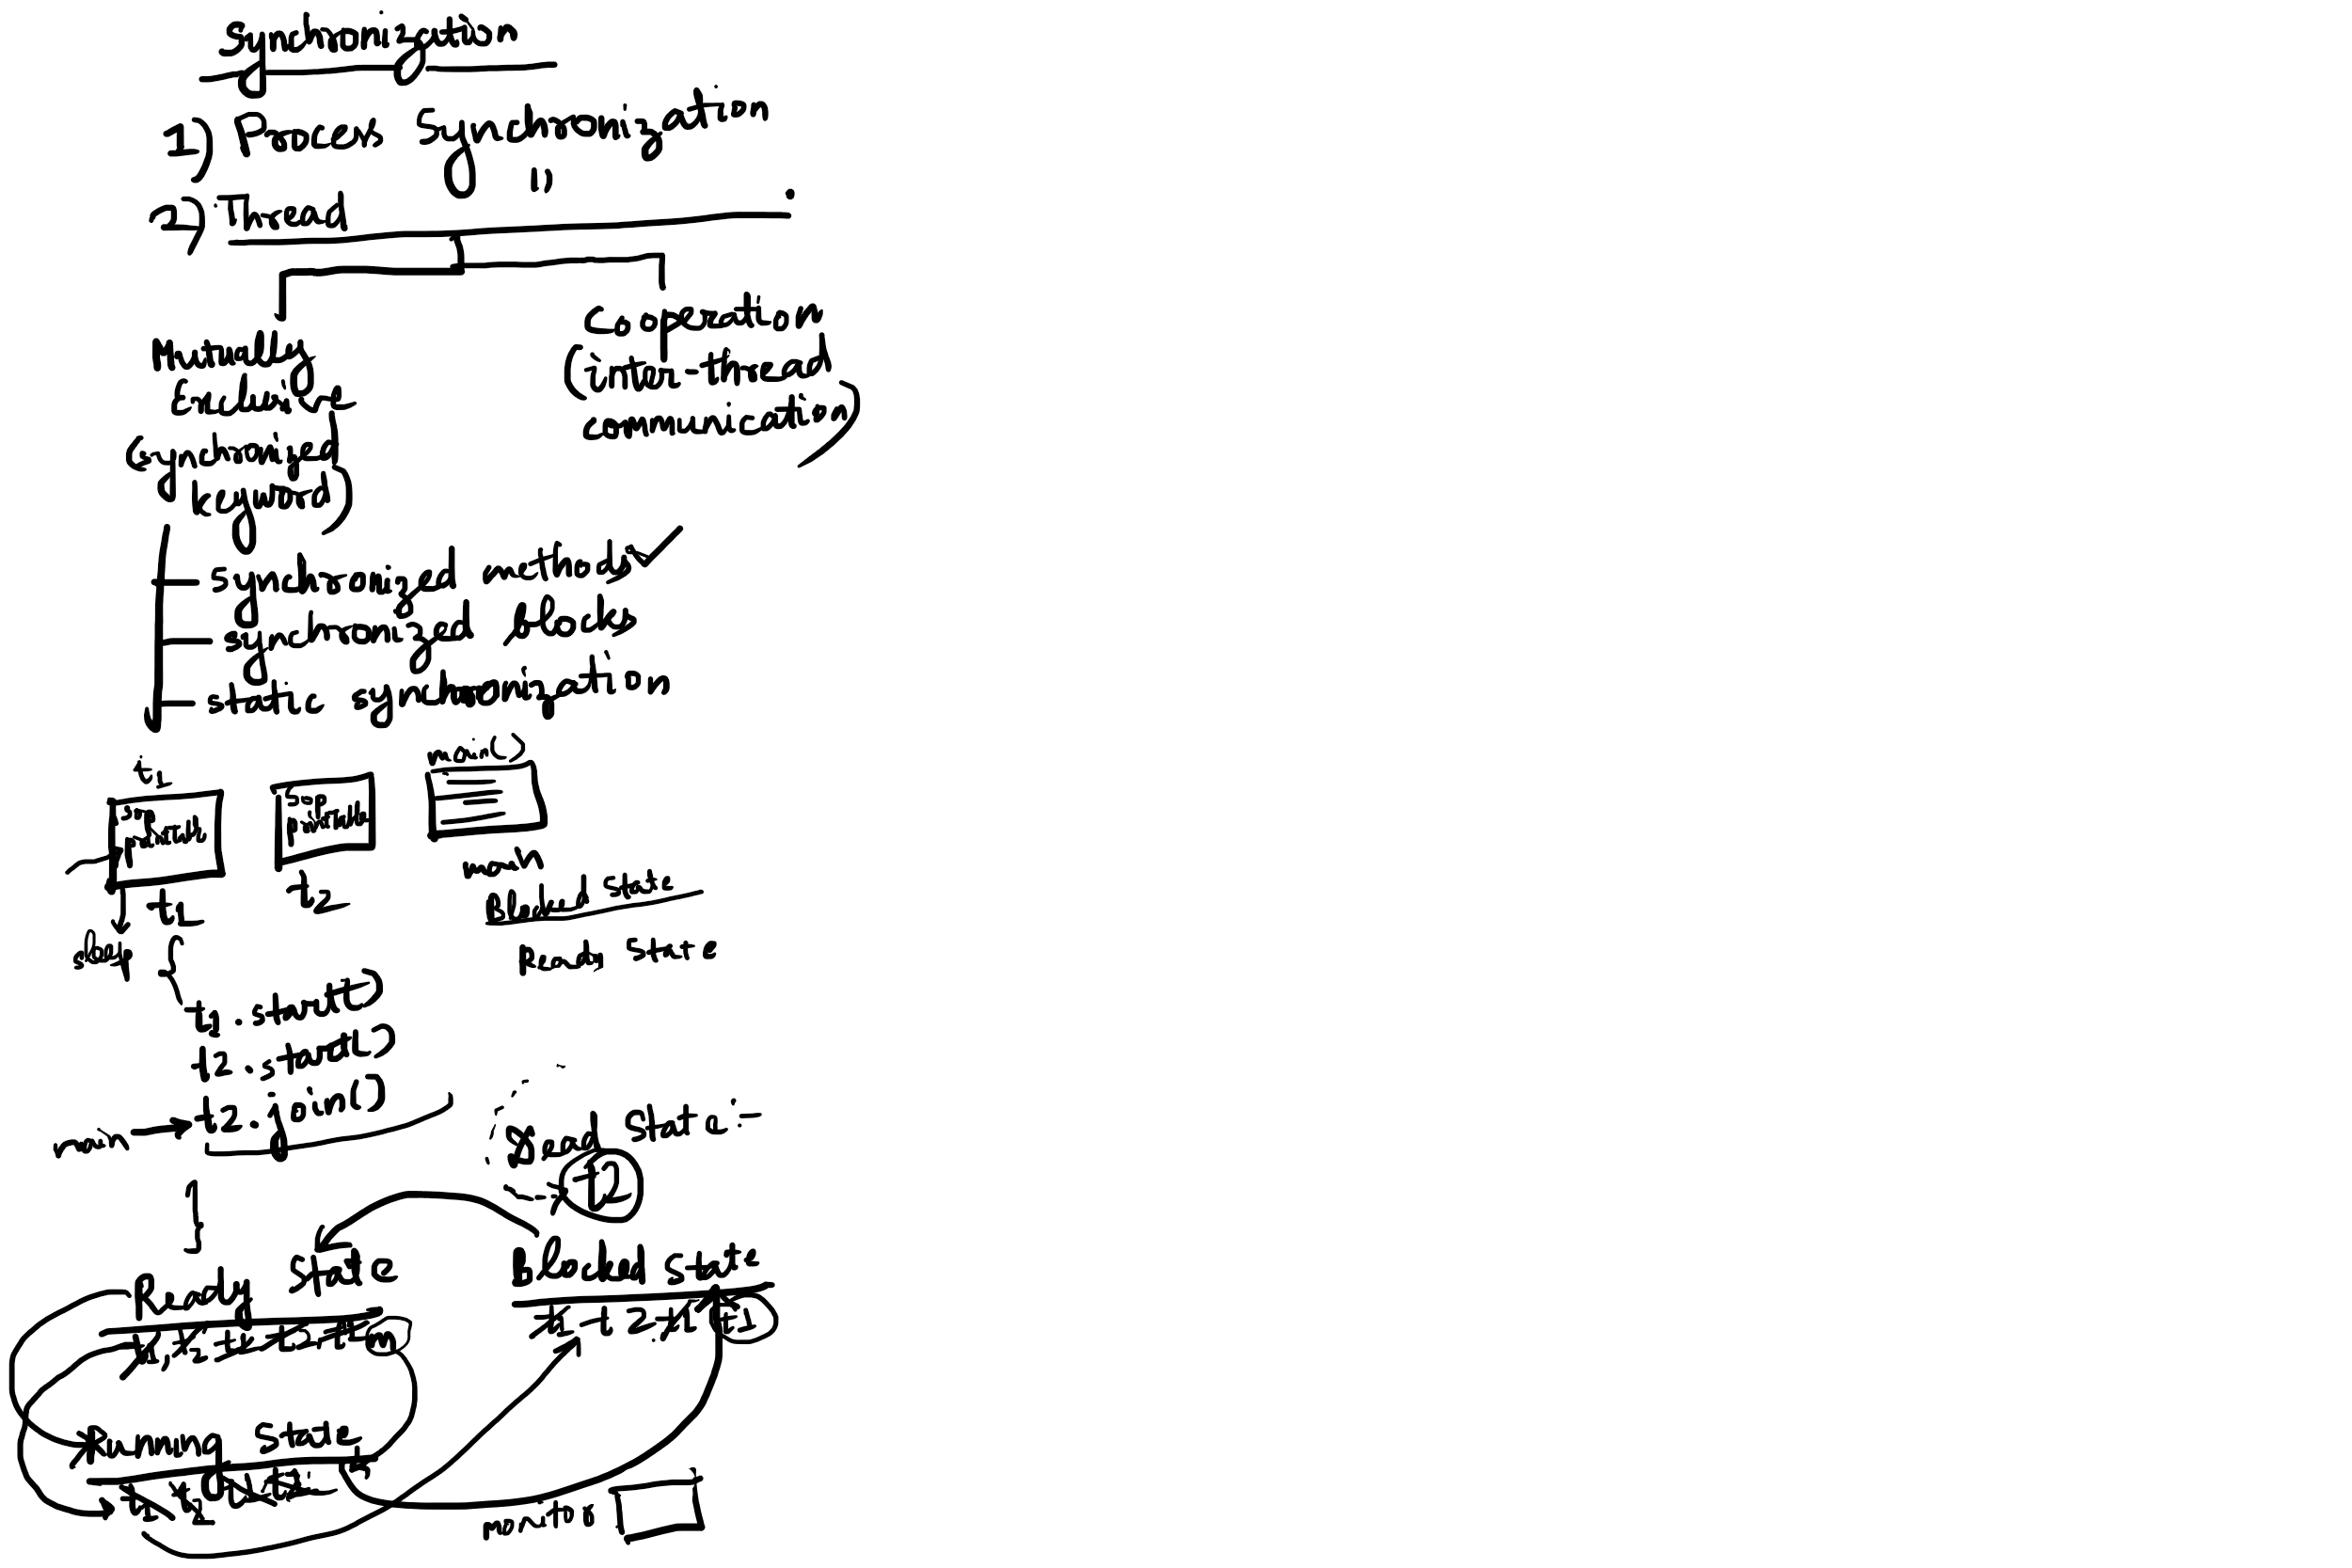 Synchronization
1) Process Synchronization
2) Thread "
Mutually
Exclusive
(synchronized
keyword)
Cooperation
(inter-thread
communication)
synchronized methods ✓
synchronized blocks
static synchronization
t1
main()
sop
printtable
sop
printtable
main
t2
t1
Blocked state
sleep
Ready state
{
t1.start()
t2.start()
main → t2.join()
}
Dead state :-
t2
Ready state
Blocked state
Running state
monitor